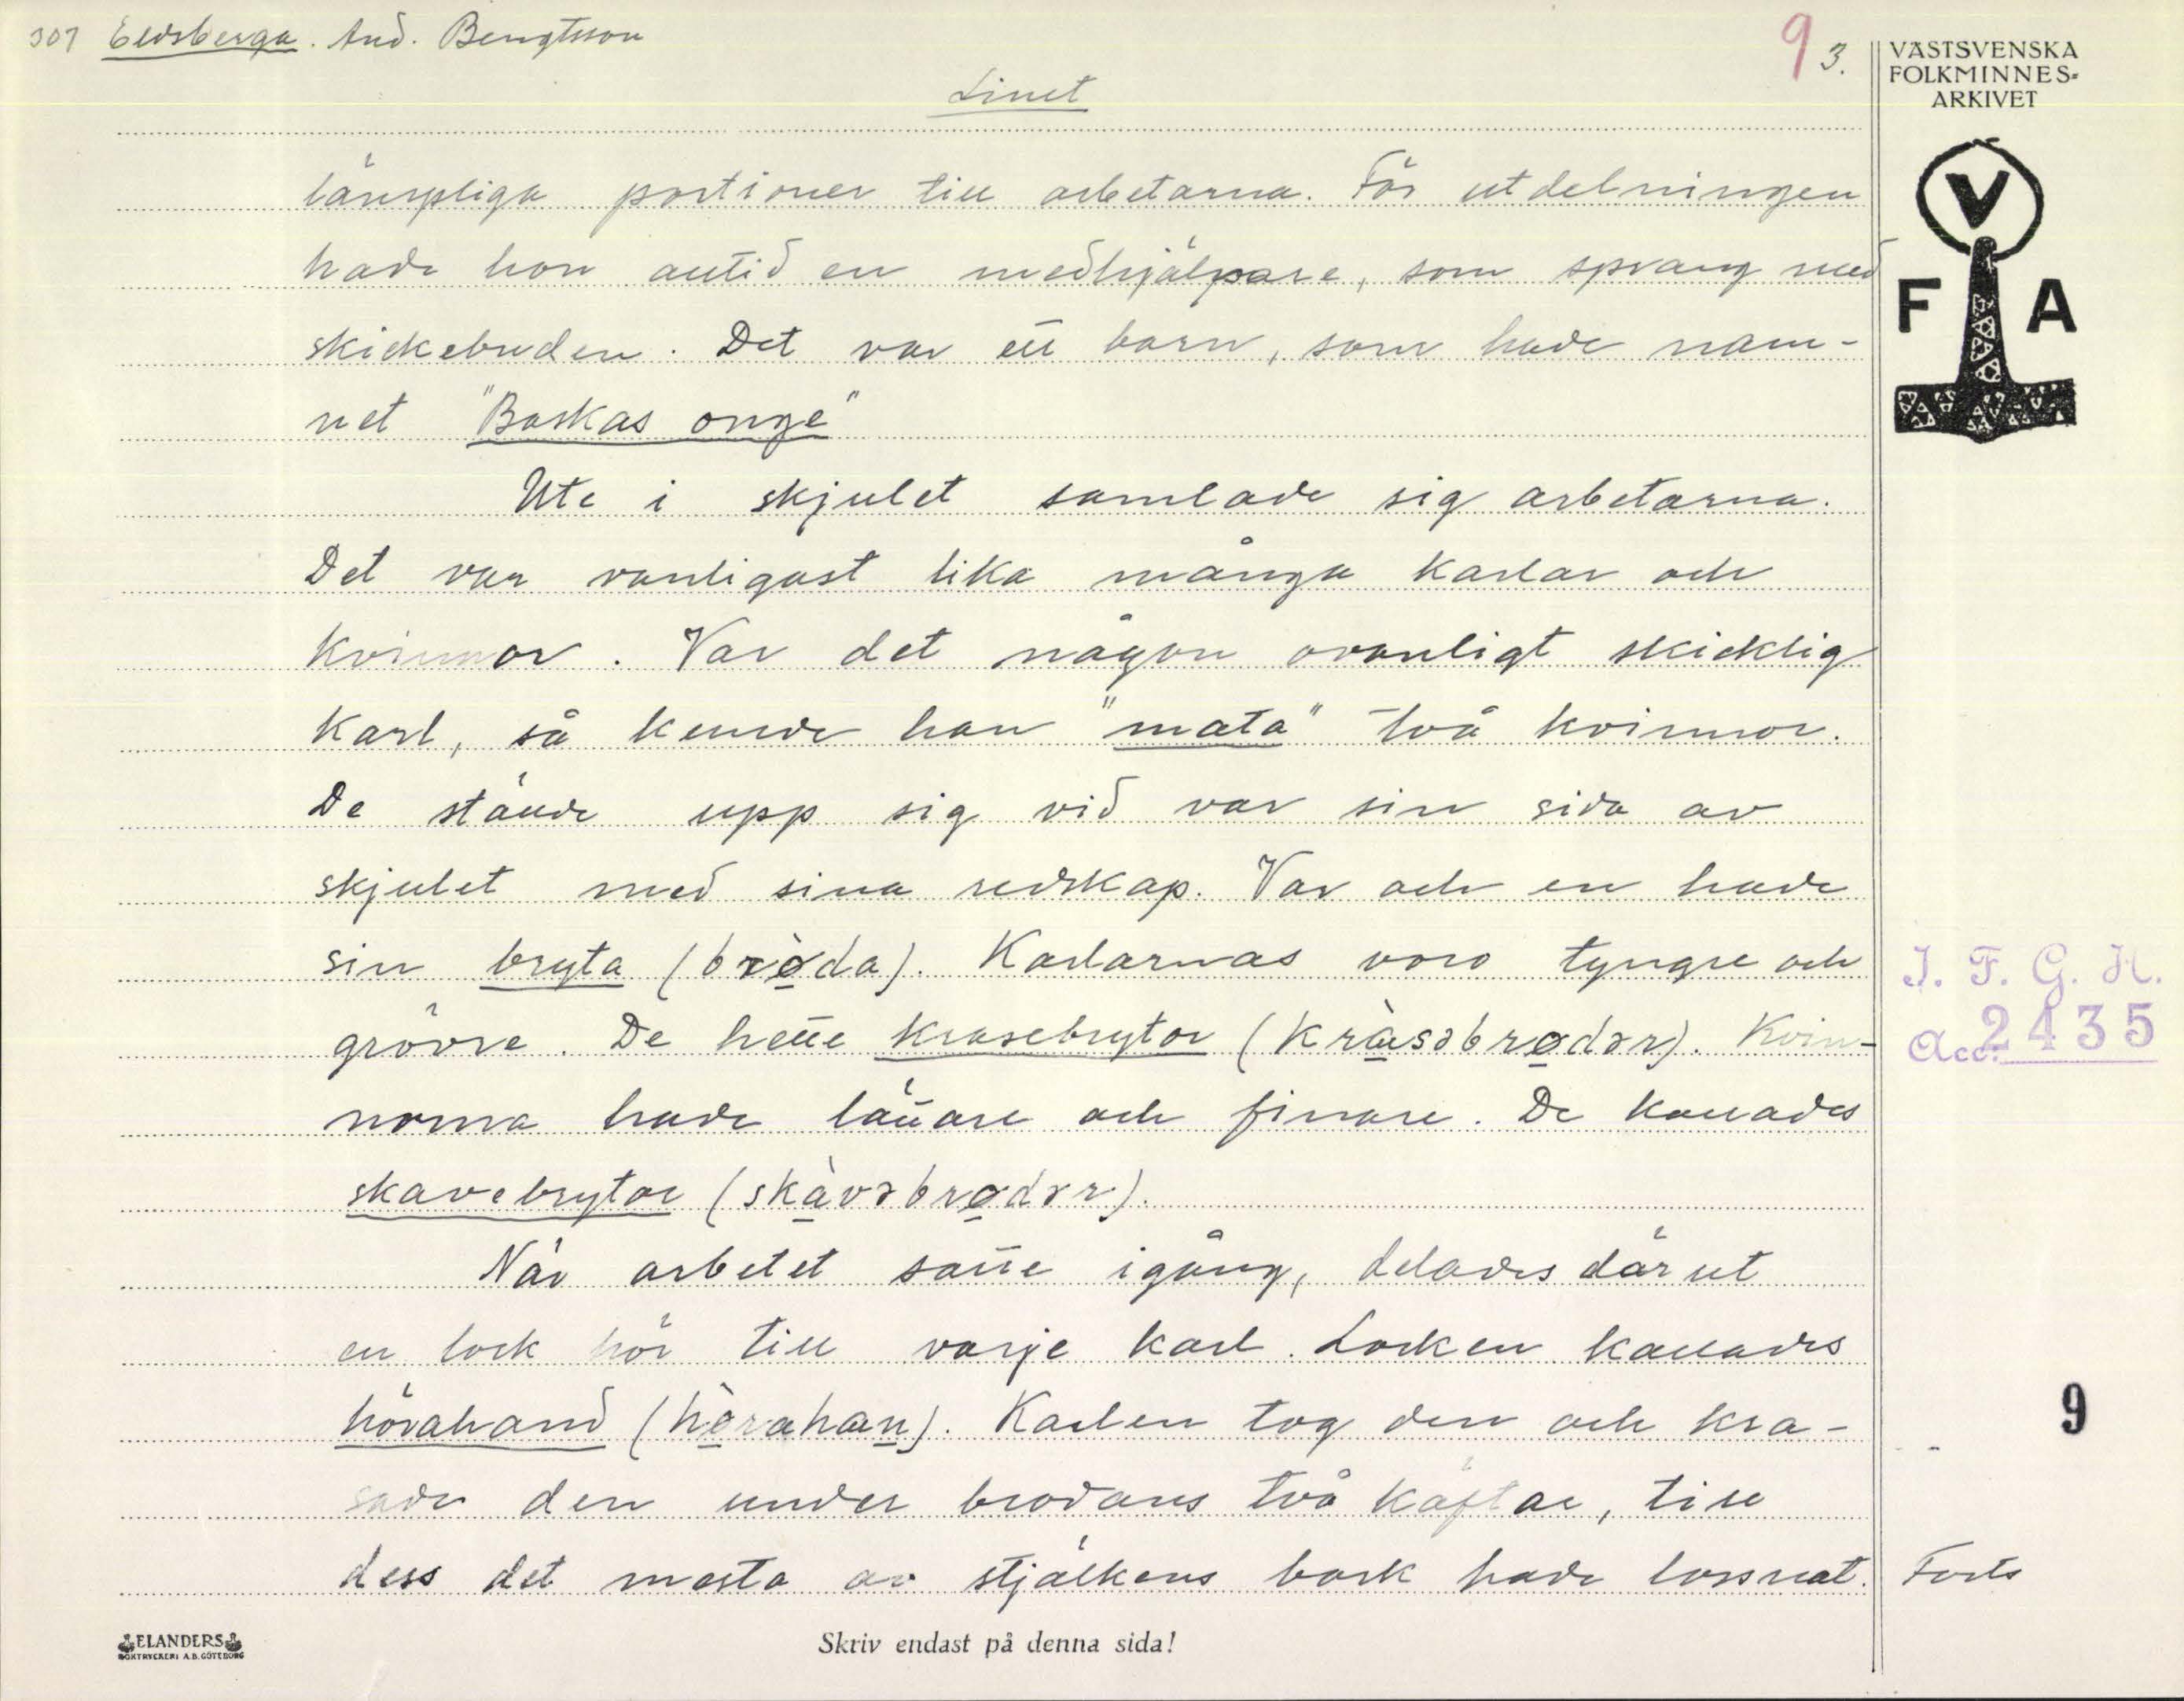 307 Eldsberga. And. Bengtsson
9 3.
Linet
lämpliga portioner till arbetarna. För utdelningen
hade hon alltid en medhjälpare, som sprang med
skickebuden. Det var ett barn, som hade nam-
net "Baskas onge"
Ute i skjulet samlade sig arbetarna.
Det var vanligast lika många karlar och
kvinnor. Var det någon ovanligt skicklig
karl, så kunde han "mata" två kvinnor.
De ställde upp sig vid var sin sida av
skjulet med sina redskap. Var och en hade
sin bryta (bròda). Karlarnas voro tyngre och
grövre. De hette krasebrytor (kràsəbrodər). Kvin-
norna hade lättare och finare. De kallades
skavebrytor (skàvəbrodər).
När arbetet satte igång, delades där ut
en lock hör till varje karl. Locken kallades
hörahand (hòrahan). Karlen tog den och kra-
sade den under brodans två käftar, till
dess det mesta av stjälkens bark hade lossnat.
Forts
VÄSTSVENSKA
FOLKMINNES-
ARKIVET
V
F A
I. F. G. H.
Acc. 2435
9
ELANDERS
BOKTRYCKERI A.B. GÖTEBORG
Skriv endast på denna sida!